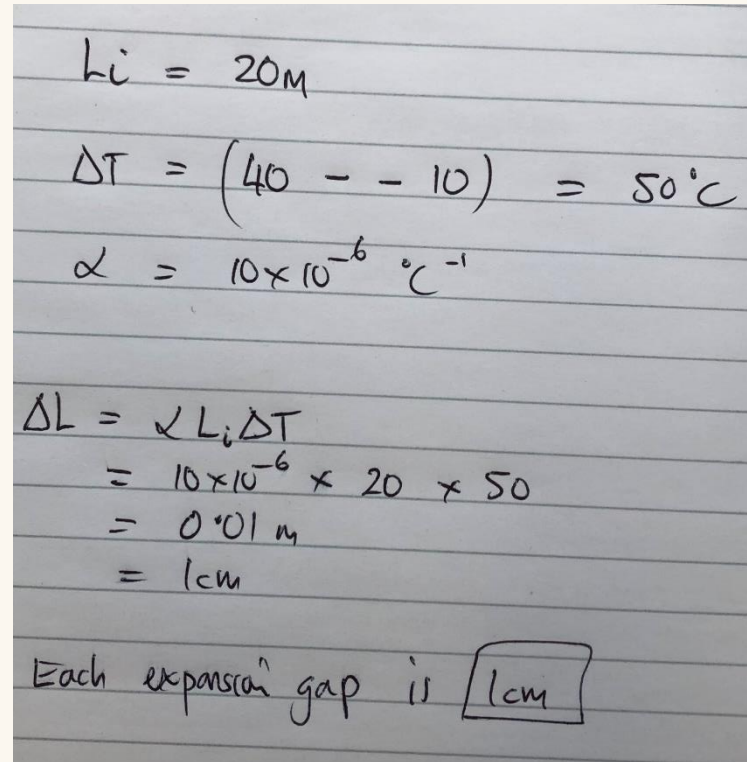 Li = 20M
ΔT = (40 - - 10) = 50°C
α = 10×10⁻⁶ °C⁻¹
ΔL = αLᵢΔT
= 10×10⁻⁶ × 20 × 50
= 0·01 m
= 1cm
Each expansion gap is 1cm